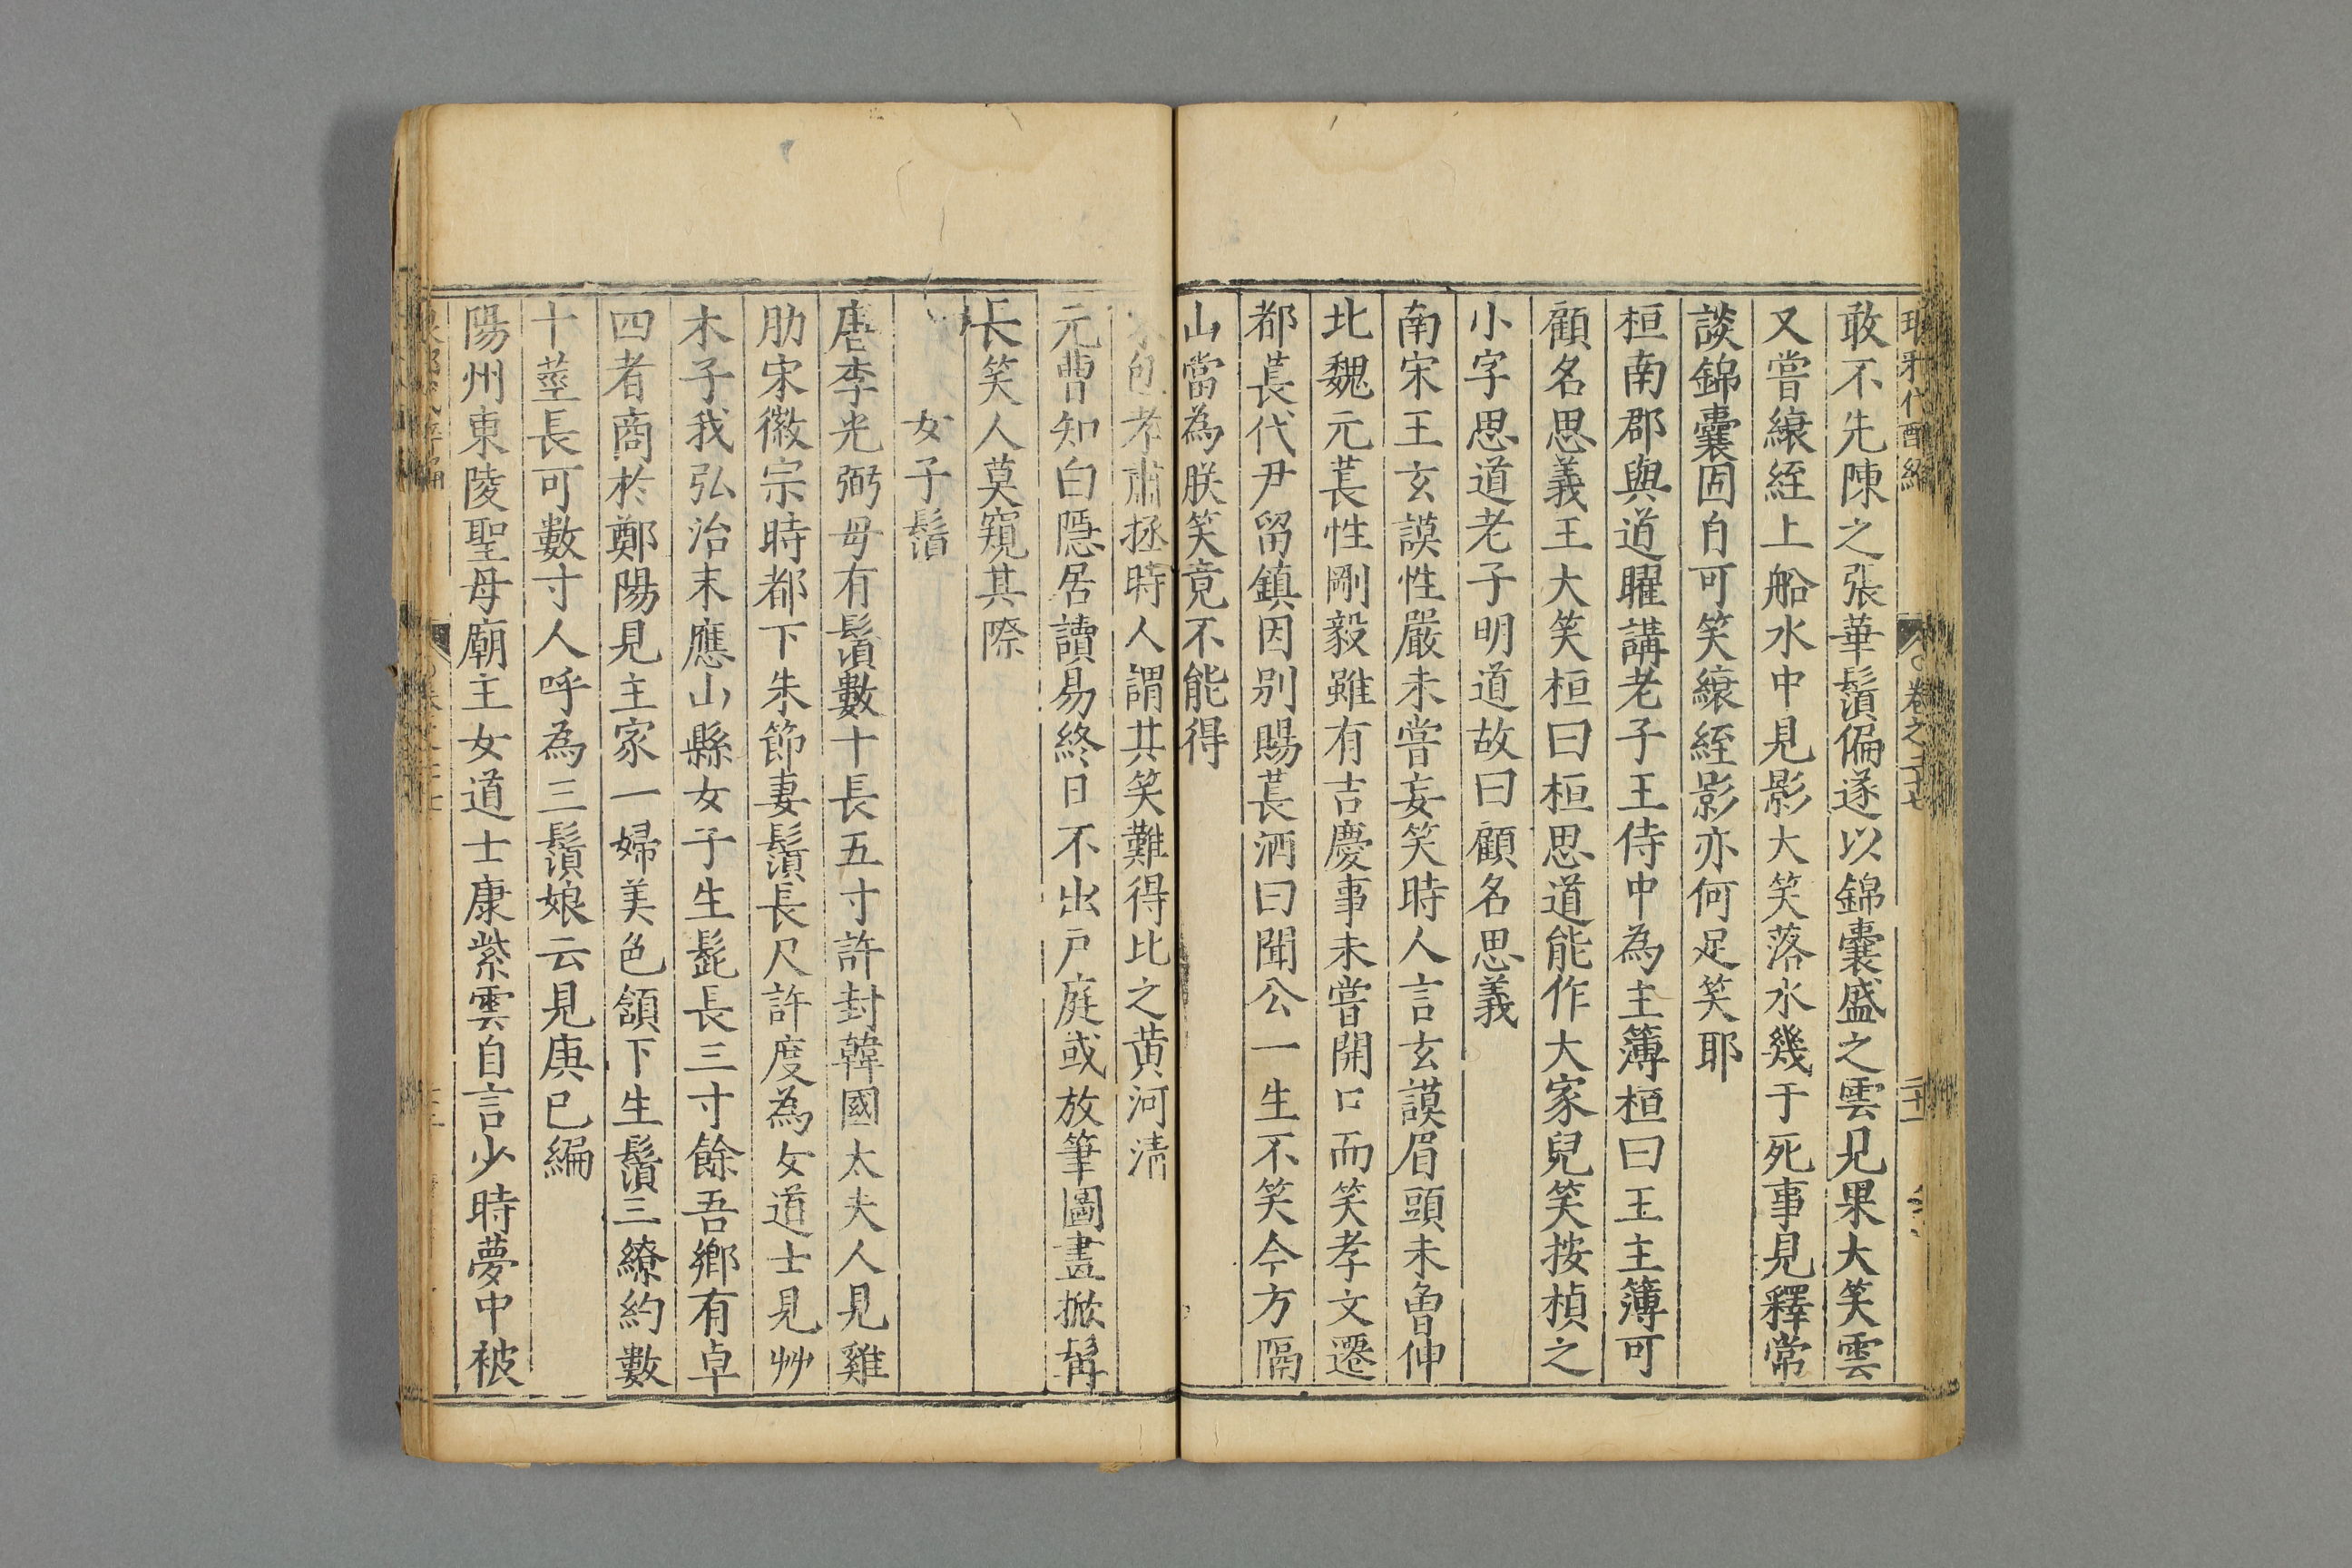 敢不先陳之張華鬚偏遂以錦囊盛之雲見果大笑雲
又嘗縗絰上船水中見影大笑落水幾于死事見釋常
談錦囊固自可笑縗絰影亦何足笑耶
桓南郡與道曜講老子王侍中為主簿桓曰王主簿可
顧名思義王大笑桓曰桓思道能作大家兒笑按楨之
小字思道老子明道故曰顧名思義
南宋王玄謨性嚴未嘗妄笑時人言玄謨眉頭未曾伸
北魏元萇性剛毅雖有吉慶事未嘗開口而笑孝文遷
都萇代尹留鎮因别賜萇酒曰聞公一生不笑今方隔
山當為朕笑竟不能得
包孝肅拯時人謂其笑難得比之黄河清
元曹知白隱居讀易終日不出戸庭或放筆圖畫掀髯
長笑人莫窺其際
女子鬚
唐李光弼母有鬚數十長五寸許封韓國太夫人見雞
肋宋徽宗時都下朱節妻鬚長尺許度為女道士見艸
木子我弘治末應山縣女子生髭長三寸餘吾鄉有卓
四者商於鄭陽見主家一婦美色頷下生鬚三繚約數
十莖長可數寸人呼為三鬚娘云見庚巳編
陽州東陵聖母廟主女道士康紫雲自言少時夢中被
卷之三十七